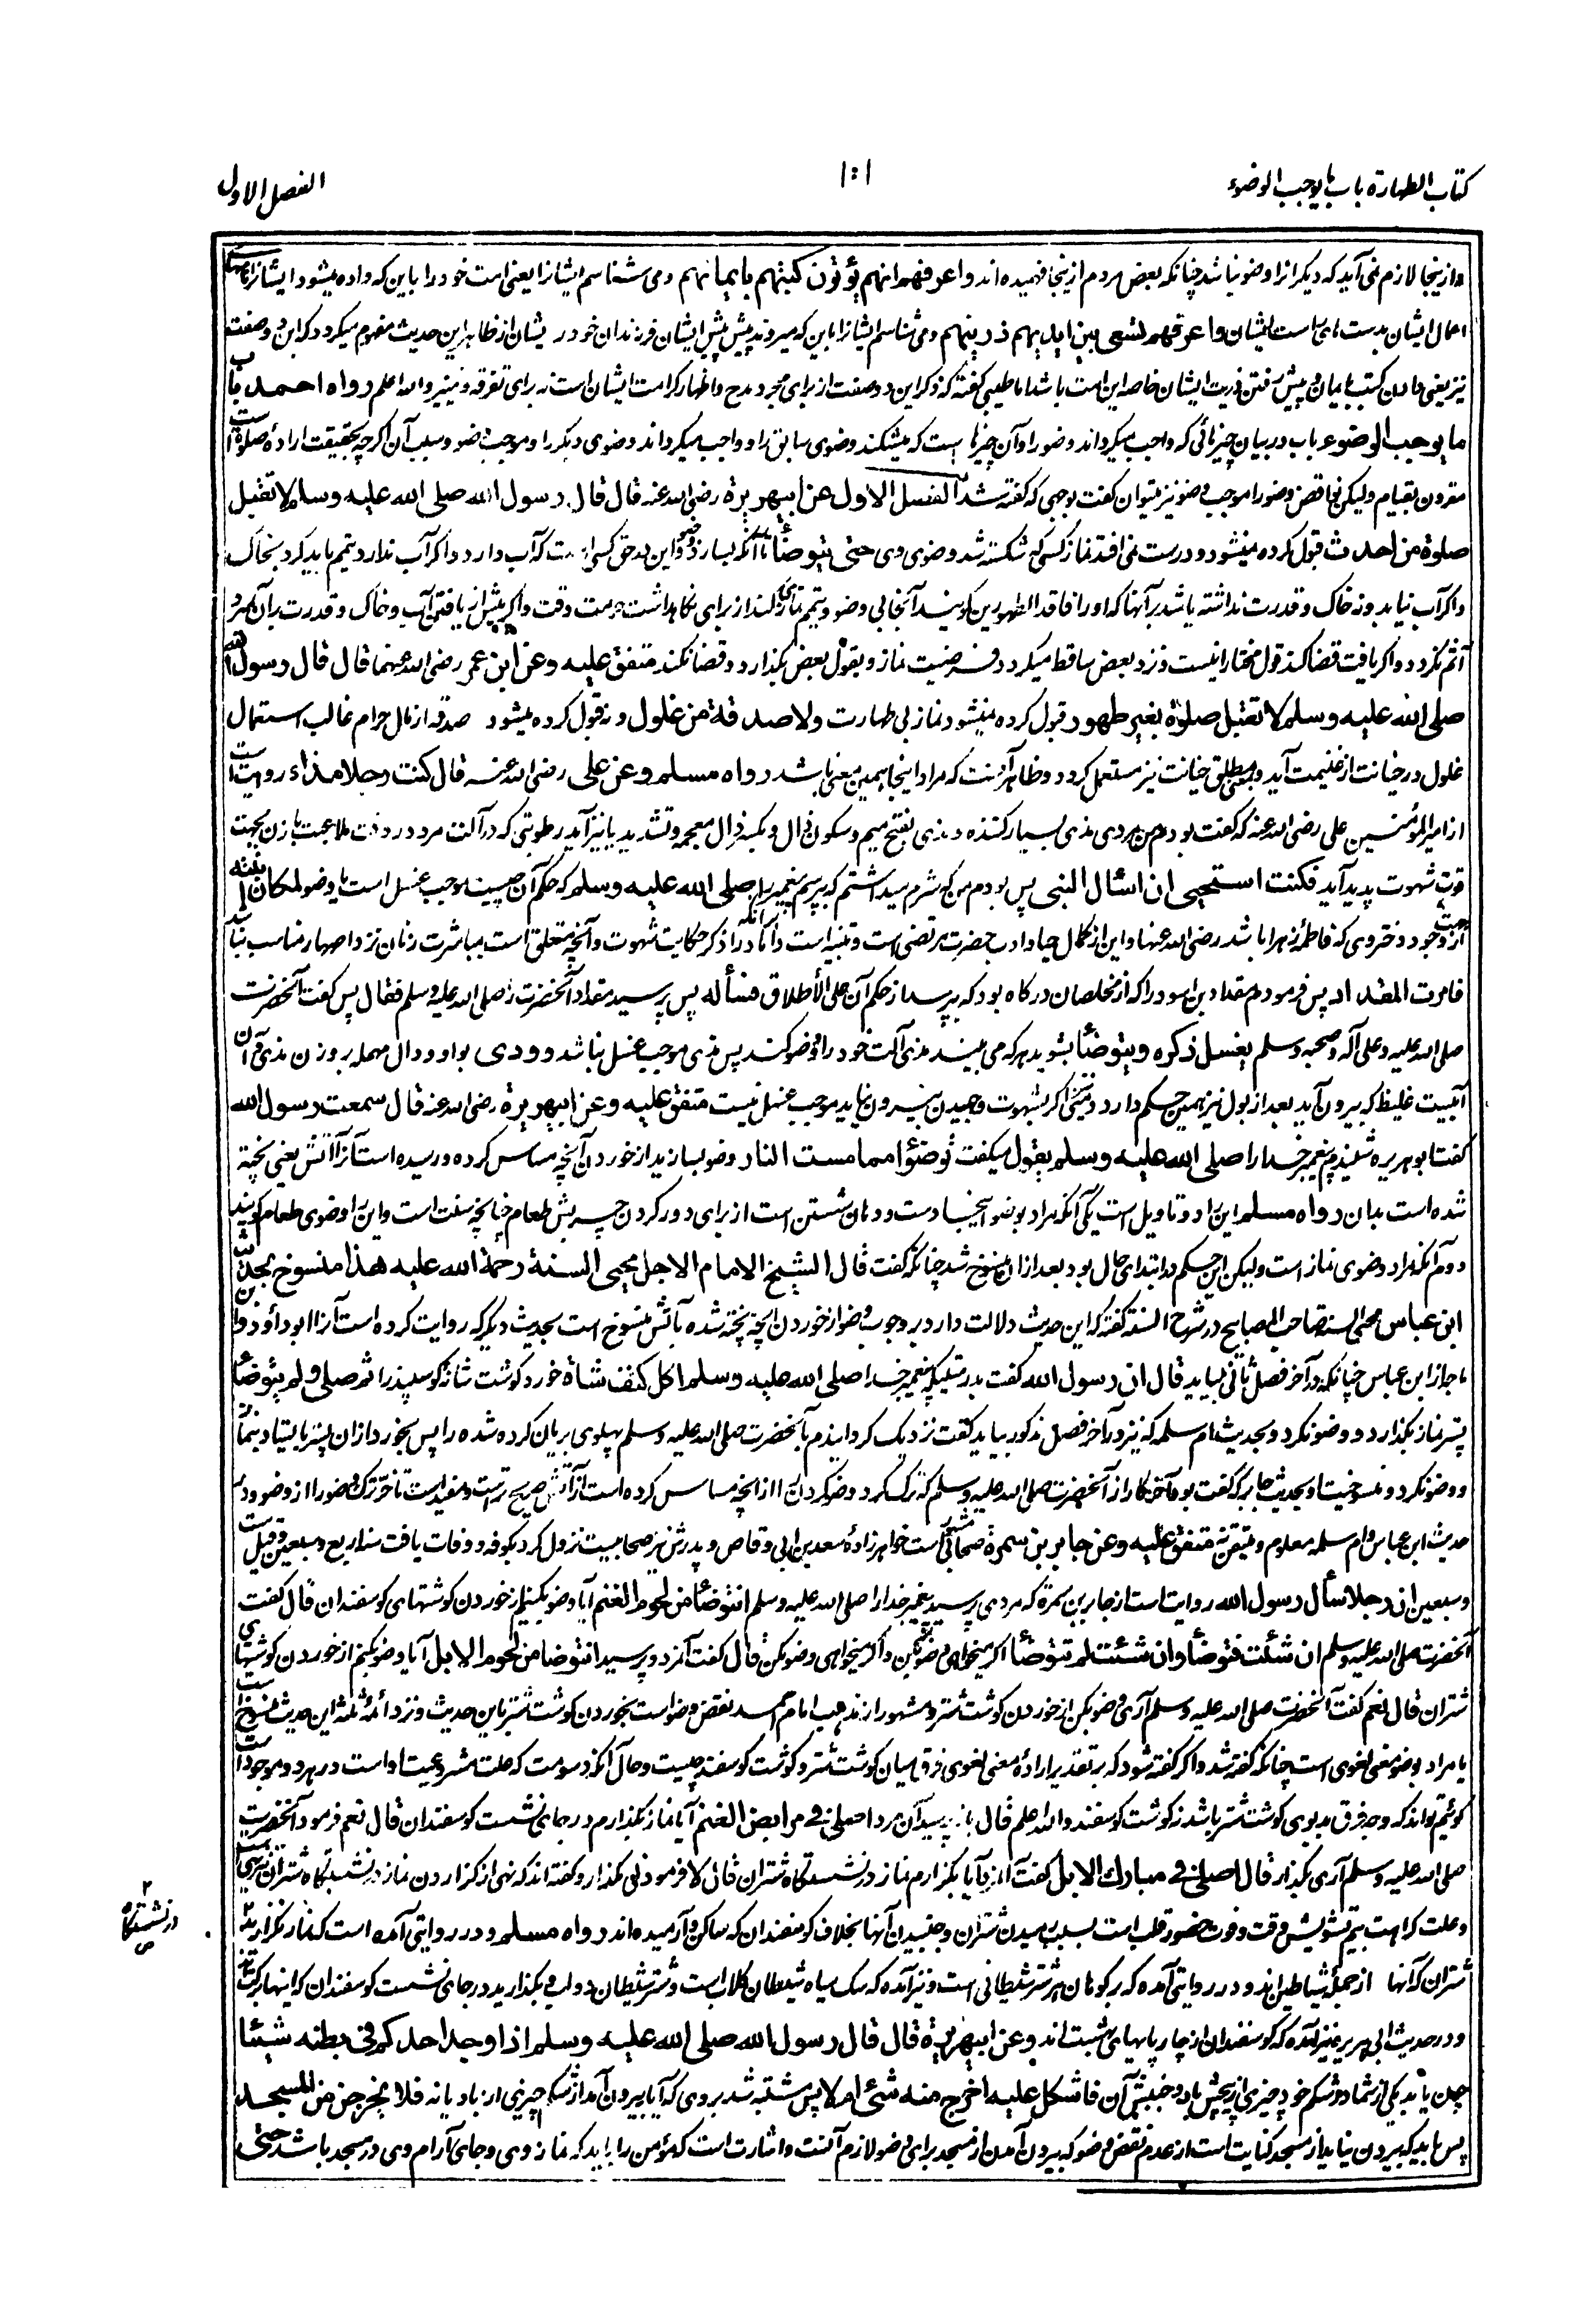 کتاب الطهارة باب ما یوجب الوضوء
۱۰۱
الفصل الاول
واز ینجا لازم نمی آید که دیگرانرا وضو نباشد چنانکه بعض مردم از ینجا فهمیده اند واعرفهم انهم یؤتون کتبهم بایمانهم ومی شناسم ایشانرا یعنی امت خود را باین که داده میشود ایشانرا نامهای
اعمال ایشان بدست های راست ایشان واعرفهم تسعی بین ایدیهم ذریتهم ومی شناسم ایشانرا باین که میروند پیش پیش ایشان فرزندان خورد ایشان از ظاهر این حدیث مفهوم میگردد که این دو صفت
نیز یعنی دادن کتب بایمان و پیش رفتن ذریت ایشان خاصه این امت باشد اما طیبی گفته که ذکر این دو صفت از برای مجرد مدح واظهار کرامت ایشان است نه برای تفرقه وتمییز والله اعلم رواه احمد باب
ما یوجب الوضوء باب در بیان چیزهائی که واجب میگرداند وضو را وآن چیزها ست که میشکند وضوی سابق را و واجب میگرداند وضوی دیگر را وموجب وضو وسبب آن اگرچه بحقیقت اراده صلوة است
مقرون بقیام ولیکن نواقض وضو را موجب وضو نیز میتوان گفت بوجهی که گفته شد الفصل الاول عن ابیهریرة رضی الله عنه قال قال رسول الله صلی الله علیه وسلم لا تقبل
صلوة من احدث قبول کرده نمیشود و درست نمی افتد نماز کسی که شکسته شد وضوی وی حتی یتوضأ تا آنکه بسازد وضو واین در حق کسی است که آب دارد واگر آب ندارد تیمم باید کرد بخاک
واگر آب نیابد ونه خاک وقدرت نداشته باشد بر آنها که او را فاقد الطهورین گویند آنجا بی وضو وتیمم نماز گذارد از برای نگاهداشت حرمت وقت واگر پیش از یافتن آب وخاک وقدرت بران بمرد
آثم نگردد واگر یافت قضا کند قول مختار اینست ونزد بعض ساقط میگردد فرضیت نماز وبقول بعض بگذارد وقضا نکند متفق علیه وعن ابن عمر رضی الله عنهما قال قال رسول الله
صلی الله علیه وسلم لا تقبل صلوة بغیر طهور قبول کرده نمیشود نماز بی طهارت ولا صدقة من غلول ونه قبول کرده میشود صدقه از مال حرام غالب استعمال
غلول در خیانت از غنیمت آید وبمعنی مطلق خیانت نیز مستعمل گردد وظاهر آنست که مراد اینجا همین معنی باشد رواه مسلم وعن علی رضی الله عنه قال کنت رجلا مذاء روایت است
از امیر المؤمنین علی رضی الله عنه که گفت بودم من مردی مذی بسیار کننده ومذی بفتح میم وسکون ذال وبکسر ذال معجمه وتشدید یا نیز آید رطوبتی که در آلت مرد در وقت ملاعبت با زن بجهت
قوت شهوت پدید آید فکنت استحیی ان اسأل النبی پس بودم من که شرم میداشتم که بپرسم پیغمبر را صلی الله علیه وسلم که حکم آن چیست موجب غسل است یا وضو لمکان ابنته
از جهت وجود دختر وی که فاطمه زهرا باشد رضی الله عنها واین از کمال حیا وادب حضرت مرتضی است وتنبیه است دانا را بر آنکه ذکر حکایت شهوت وآنچه متعلق است بمباشرت زنان نزد اصهار مناسب نباشد
فامرت المقداد پس فرمودم مقداد بن اسود را که از مخلصان درگاه بود که بپرسد از حکم آن علی الاطلاق فسأله پس پرسید مقداد آنحضرت را صلی الله علیه وسلم فقال پس گفت آنحضرت
صلی الله علیه وعلی آله وصحبه وسلم یغسل ذکره ویتوضأ بشوید هر که می بیند مذی آلت خود را ووضو کند پس مذی موجب غسل نباشد وودی بواو ودال مهمله بر وزن مذی وآن
آبیست غلیظ که بیرون آید بعد از بول نیز همین حکم دارد ومنی اگر بشهوت وجهیدن بیرون نیاید موجب غسل نیست متفق علیه وعن ابیهریرة رضی الله عنه قال سمعت رسول الله
گفت ابوهریره شنیدم پیغمبر خدا را صلی الله علیه وسلم یقول میگفت توضؤا مما مست النار وضو بسازید از خوردن آنچه مساس کرده ورسیده است آنرا آتش یعنی پخته
شده است بدان رواه مسلم این را دو تاویل است یکی آنکه مراد بوضو اینجا دست ودهان شستن است از برای دور کردن چربش طعام چنانچه سنت است واین را وضوی طعام گویند
دوم آنکه مراد وضوی نماز است ولیکن این حکم در ابتدای حال بود بعد ازان منسوخ شد چنانکه گفت قال الشیخ الامام الاجل محیی السنة رحمة الله علیه هذا منسوخ بحدیث
ابن عباس محیی السنه صاحب المصابیح در شرح السنه گفته که این حدیث دلالت دارد بر وجوب وضو از خوردن آنچه پخته شده بآتش منسوخ است بحدیث دیگر که روایت کرده است آنرا ابوداؤد وابن
ماجه از ابن عباس چنانکه در آخر فصل ثانی بیاید قال ان رسول الله گفت بدرستیکه پیغمبر خدا صلی الله علیه وسلم اکل کتف شاة خورد گوشت شانه گوسپند را ثم صلی ولم یتوضأ
پستر نماز بگذارد ووضو نکرد وبحدیث ام سلمه که نیز در آخر فصل مذکور بیاید گفت نزدیک گردانیدم بآنحضرت صلی الله علیه وسلم پهلوی بریان کرده شده را پس بخورد ازان پستر بایستاد بنماز
ووضو نکرد ومنسوخیت او بحدیث جابر که گفت بود آخر کار از آنحضرت صلی الله علیه وسلم که ترک کرد وضو کردن را از آنچه مساس کرده است آنرا آتش صریح تر است ومفید است تاخر ترک وضو را از وضو ودر
حدیث ابن عباس وام سلمه معلوم ومتیقن نه متفق علیه وعن جابر بن سمرة صحابی است خواهرزادهٔ سعد بن ابی وقاص وپدرش نیز صحابیست نزول کرد بکوفه ووفات یافت سنه اربع وسبعین وقیل ست
وسبعین ان رجلا سأل رسول الله روایت است از جابر بن سمره که مردی پرسید پیغمبر خدا را صلی الله علیه وسلم انتوضأ من لحوم الغنم آیا وضو بکنیم از خوردن گوشتهای گوسفندان قال گفت
آنحضرت صلی الله علیه وسلم ان شئت فتوضأ وان شئت لم تتوضأ اگر میخواهی وضو بکن واگر میخواهی وضو مکن قال گفت آنمرد وپرسید انتوضأ من لحوم الابل آیا وضو بکنم از خوردن گوشتهای
شتران قال نعم گفت آنحضرت صلی الله علیه وسلم آری وضو بکن از خوردن گوشت شتر ومشهور از مذهب امام احمد نقض وضو است بخوردن گوشت شتر باین حدیث ونزد ائمه ثلثه این حدیث منسوخ است
یا مراد بوضو معنی لغوی است چنانکه گفته شد واگر گفته شود که بر تقدیر ارادهٔ معنی لغوی فرق میان گوشت شتر وگوشت گوسفند چیست وحال آنکه دسومت که علت مشروعیت اواست در هر دو موجود است
گوئیم تواند که وجه فرق بدبوی گوشت شتر باشد نه گوشت گوسفند والله اعلم قال باز پرسید آن مرد اصلی فی مرابض الغنم آیا نماز بگذارم در جای نشست گوسفندان قال نعم فرمود آنحضرت
صلی الله علیه وسلم آری بگذار قال اصلی فی مبارک الابل گفت آنمرد آیا بگزارم نماز در نشستگاه شتران قال لا فرمود نی مگذار وگفته اند که نهی از گزاردن نماز در نشستگاه شتران تنزیهی است
وعلت کراهت بیم تشویش وقت وفوت حضور قلب است بسبب رمیدن شتران وجنبیدن آنها بخلاف گوسفندان که ساکن وآرمیده اند رواه مسلم ودر روایتی آمده است که نماز نگزارید
شتران که آنها از جمله شیاطین اند ودر روایتی آمده که بر کوهان هر شتر شیطانی است ونیز آمده که سگ سیاه شیطان کلاب است وشتر شیطان دواب وبگذارید در جای نشست گوسفندان که اینها برکت اند
ودر حدیث ابی هریره نیز آمده که گوسفندان از چارپایهای بهشت اند وعن ابیهریرة قال قال رسول الله صلی الله علیه وسلم اذا وجد احدکم فی بطنه شیئا
چون یابد یکی از شما در شکم خود چیزی از پیچش باد وجنبش آن فاشکل علیه اخرج منه شیء ام لا پس مشتبه شد بر وی که آیا بیرون آمد از شکم چیزی از باد یا نه فلا یخرجن من المسجد
پس باید که بیرون نیاید از مسجد کنایت است از عدم نقض وضو که بیرون آمدن از مسجد برای وضو لازم آنست واشارت است که مؤمن را باید که نماز وی وجای آرام وی در مسجد باشد حتی
۲
در نشستگاه
ص